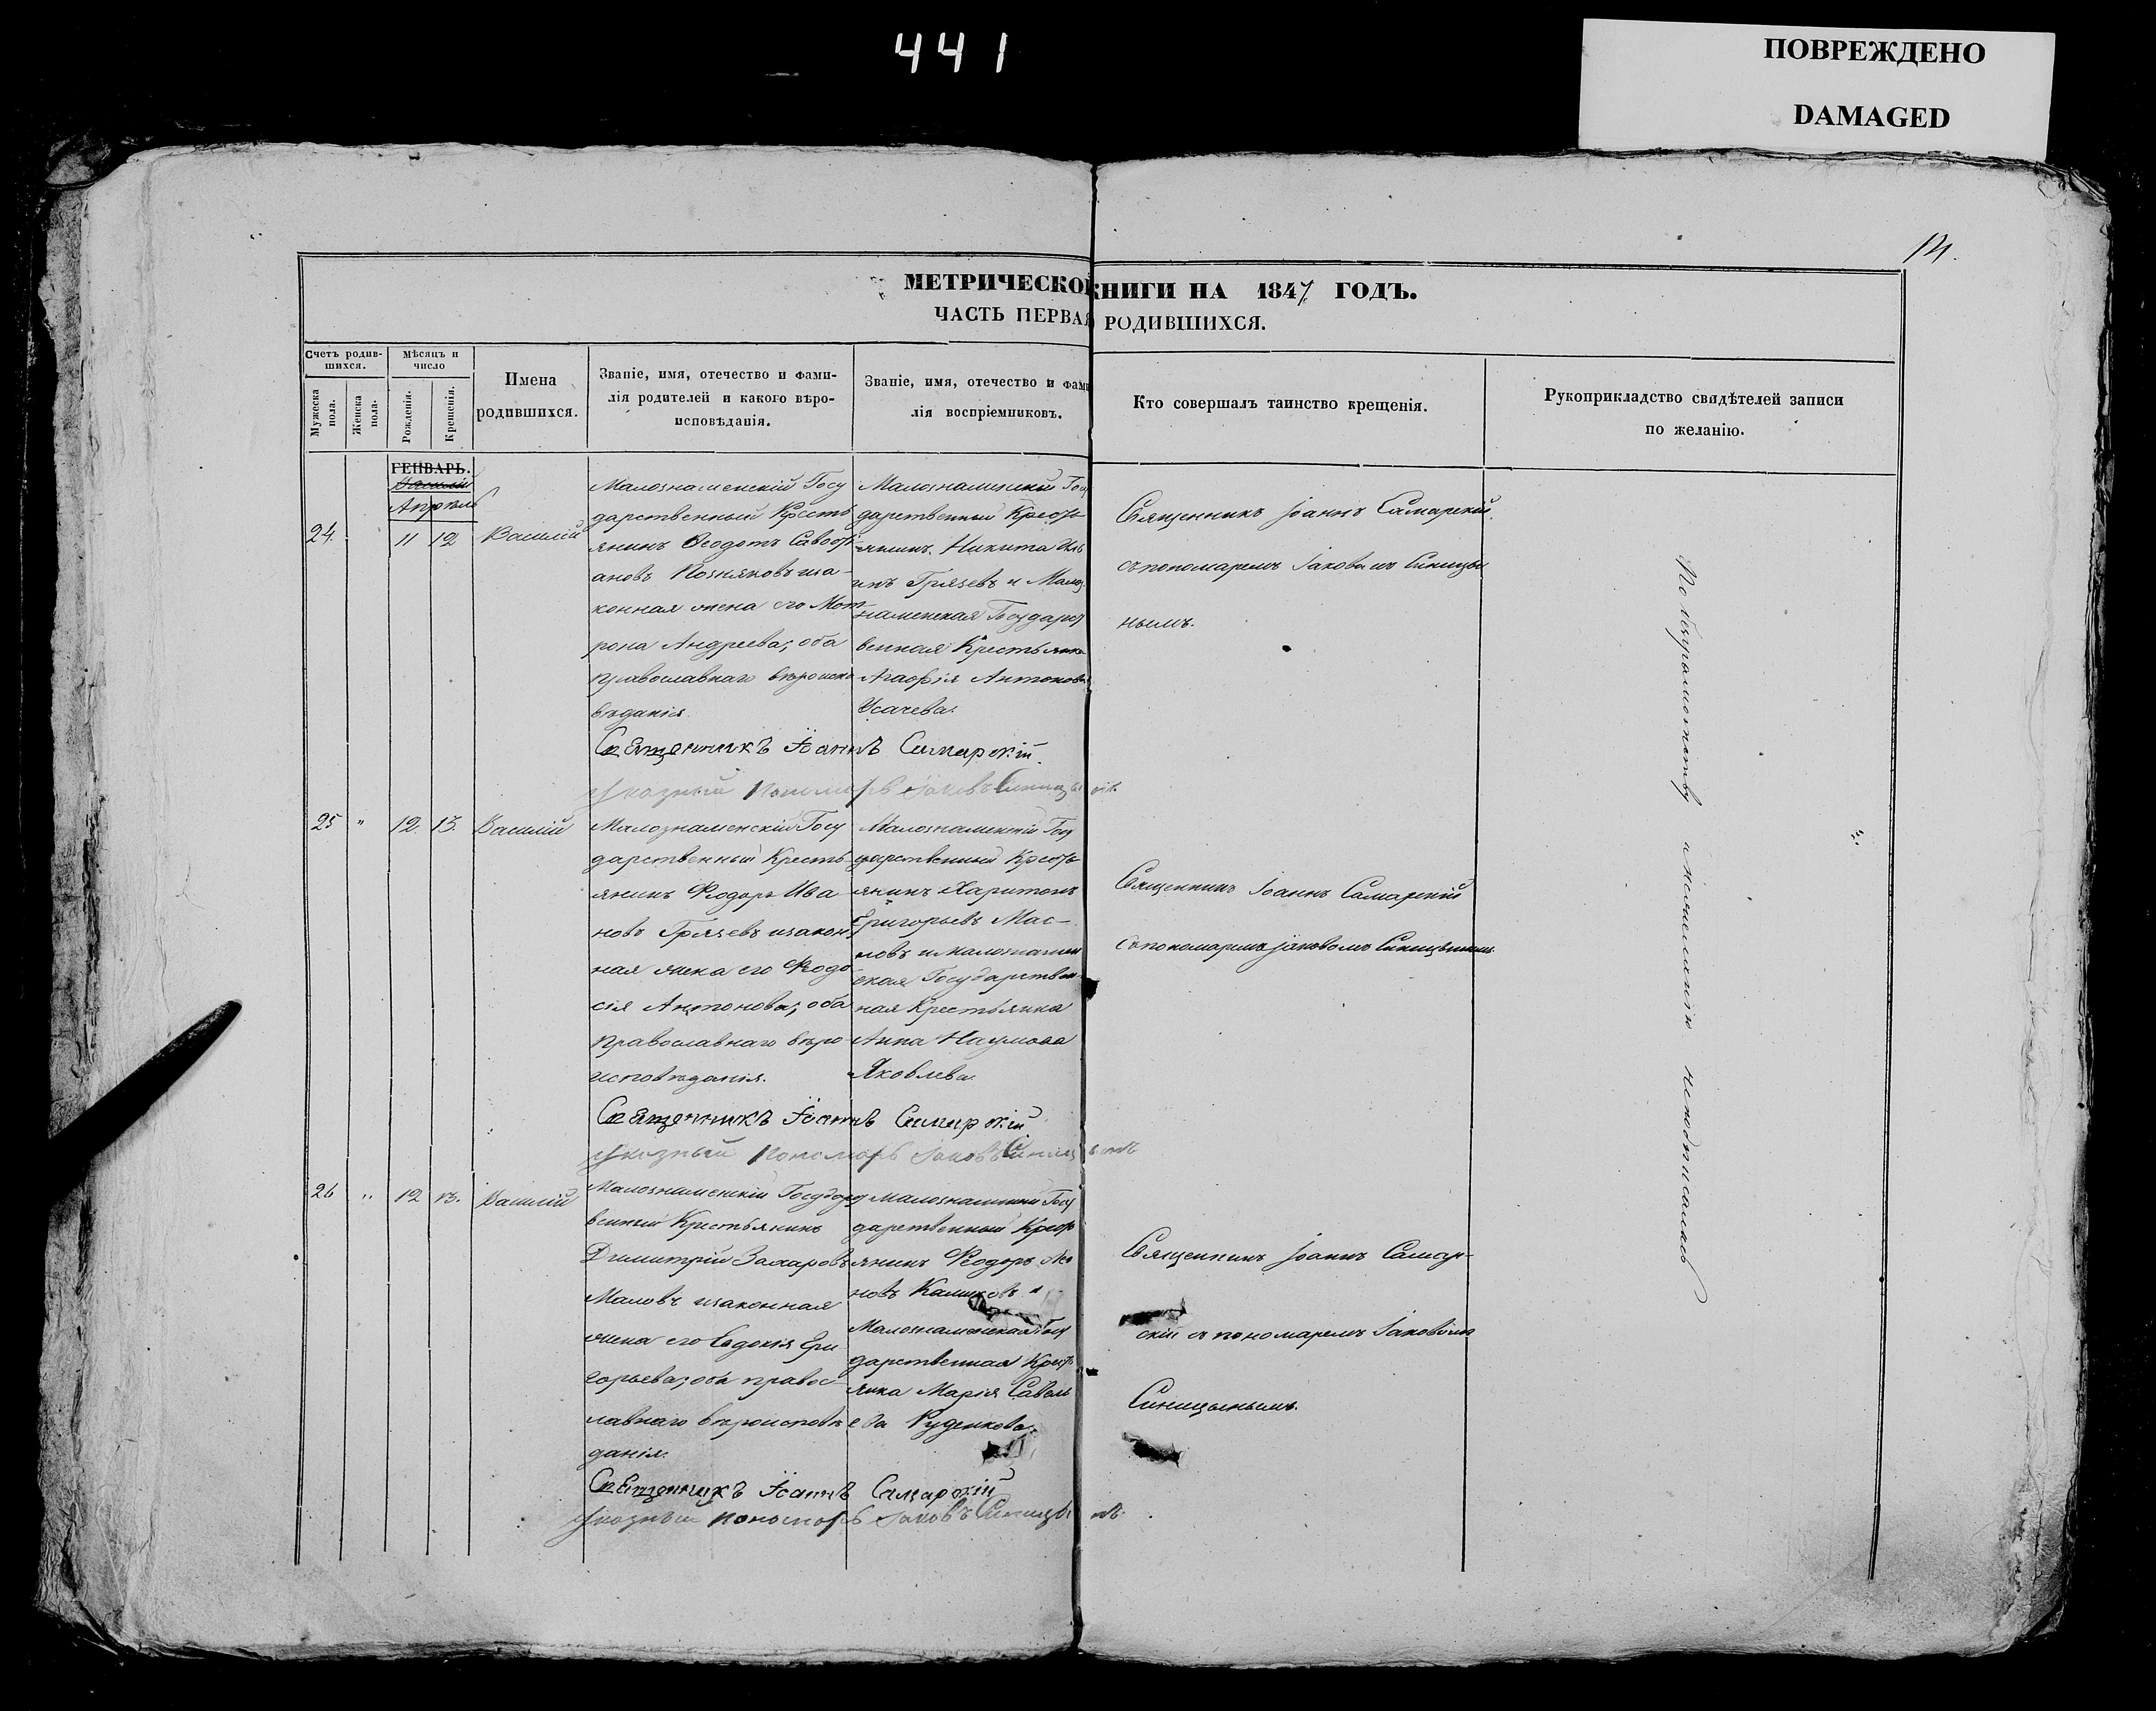 441
ПОВРЕЖДЕНО
DAMAGED
14.
МЕТРИЧЕСКОЙ КНИГИ НА 1847 ГОДЪ.
ЧАСТЬ ПЕРВАЯ РОДИВШИХСЯ.
Счетъ родив-
шихся.
Мужеска пола.
Женска пола.
Мѣсяцъ и
число
Рожденія.
Крещенія.
Имена
родившихся.
Званіе, имя, отечество и фами-
лія родителей и какого вѣро-
исповѣданія.
Званіе, имя, отечество и фами
лія воспріемниковъ.
Кто совершалъ таинство крещенія.
Рукоприкладство свидѣтелей записи
по желанію.
ГЕНВАРЬ.
Апрѣль
24. 11 12 Василій
Малознаменскій Госу
дарственный Кресть
янинъ Ѳеодотъ Савоѳі
ановъ Позняковъ иза-
конная жена его Мот-
рона Андреева; оба
православнаго вѣроиспо
вѣданія.
Малознаменскій Госу
дарственный Кресть
янинъ Никита Иль
инъ Грязевъ и Малоз
наменская Государст
венная Крестьянка
Агафія Антонова
Усачева.
Священникъ Іоаннъ Самарскій
съ пономаремъ Іаковомъ Синицы
нымъ.
Священникъ Іоаннъ Самарскій.
Указный Пономарь Іаковъ Синицынъ.
25 " 12. 13. Василій
Малознаменскій Госу
дарственный Кресть
янинъ Ѳеодоръ Ива
новъ Грязевъ изакон
ная жена его Ѳеодо
сія Антонова; оба
православнаго вѣро
исповѣданія.
Малознаменскій Госу
дарственный Кресть
янинъ Харитонъ
Григорьевъ Мас-
ловъ и малознамен
ская Государствен-
ная Крестьянка
Анна Наумова
Яковлева.
Священникъ Іоаннъ Самарскій
съ пономаремъ Іаковомъ Синицынымъ.
Священникъ Іоаннъ Самарскій
Указный Пономарь Іаковъ Синицынъ
26 " 12 13. Василій
Малознаменскій Государст
венный Крестьянинъ
Димитрій Захаровъ
Маловъ изаконная
жена его Евдокія Гри
горьева; оба правос-
лавнаго вѣроисповѣ
данія.
Малознаменскій Госу
дарственный Кресть
янинъ Ѳеодоръ
новъ и
Малознаменская Госу
дарственная Кресть
янка Марія Савель
ева Руденкова.
Священникъ Іоаннъ Самар-
скій съ пономаремъ Іаковомъ
Синицынымъ.
Священникъ Іоаннъ Самарскій
Указный Пономарь Іаковъ Синицынъ.
По безграмотству и нежеланію неподписались